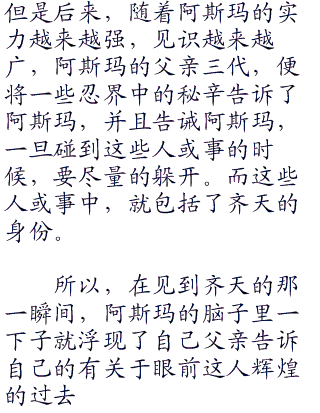 但是后来，随着阿斯玛的实
力越来越强，见识越来越
广，阿斯玛的父亲三代，便
将一些忍界中的秘辛告诉了
阿斯玛，并且告诫阿斯玛，
一旦碰到这些人或事的时
候，要尽量的躲开。而这些
人或事中，就包括了齐天的
身份。
所以，在见到齐天的那
一瞬间，阿斯玛的脑子里一
下子就浮现了自己父亲告诉
自己的有关于眼前这人辉煌
的过去